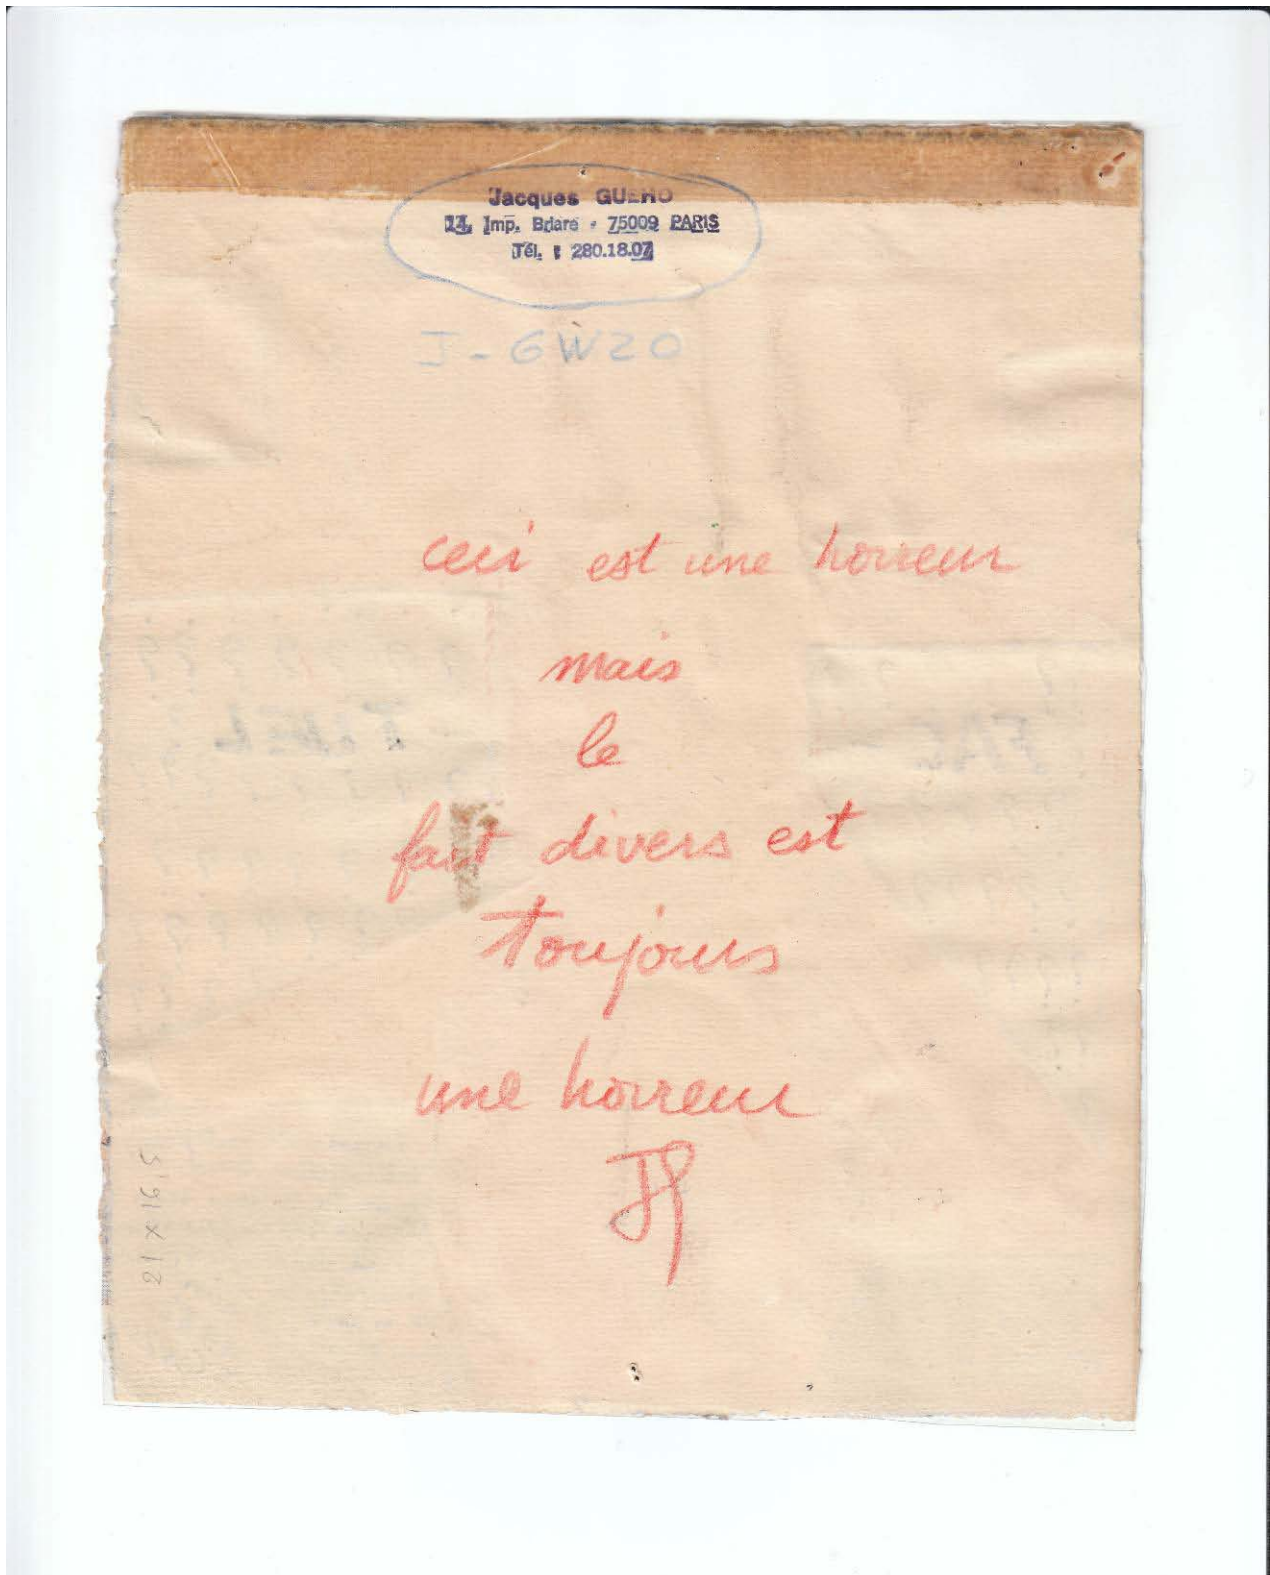 Jacques GUEHO
14, Imp. Briare - 75009 PARIS
Tél. : 280.18.07
J-GWZO
ceci est une horreur
mais
le
fait divers est
toujours
une horreur
JG
21 x 16,5